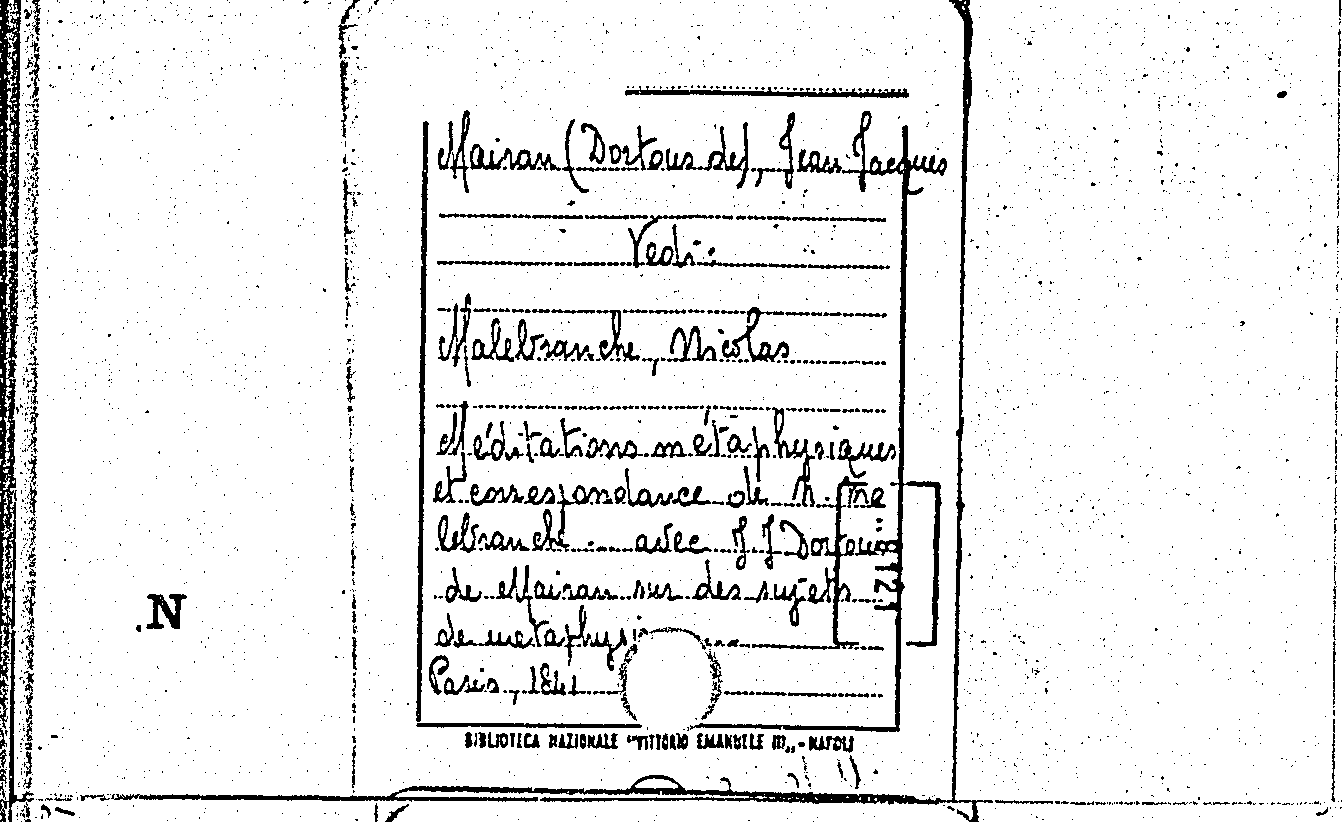 Mairan (Dortous de), Jean Jacques
Vedi:
Malebranche, Nicolas
Méditations métaphysiques
et correspondance de N. Ma
lebranche ... avec J J Dortous
de Mairan sur des sujets
de metaphysi
Paris, 1841
BIBLIOTECA NAZIONALE "VITTORIO EMANUELE III„ - NAPOLI
.N